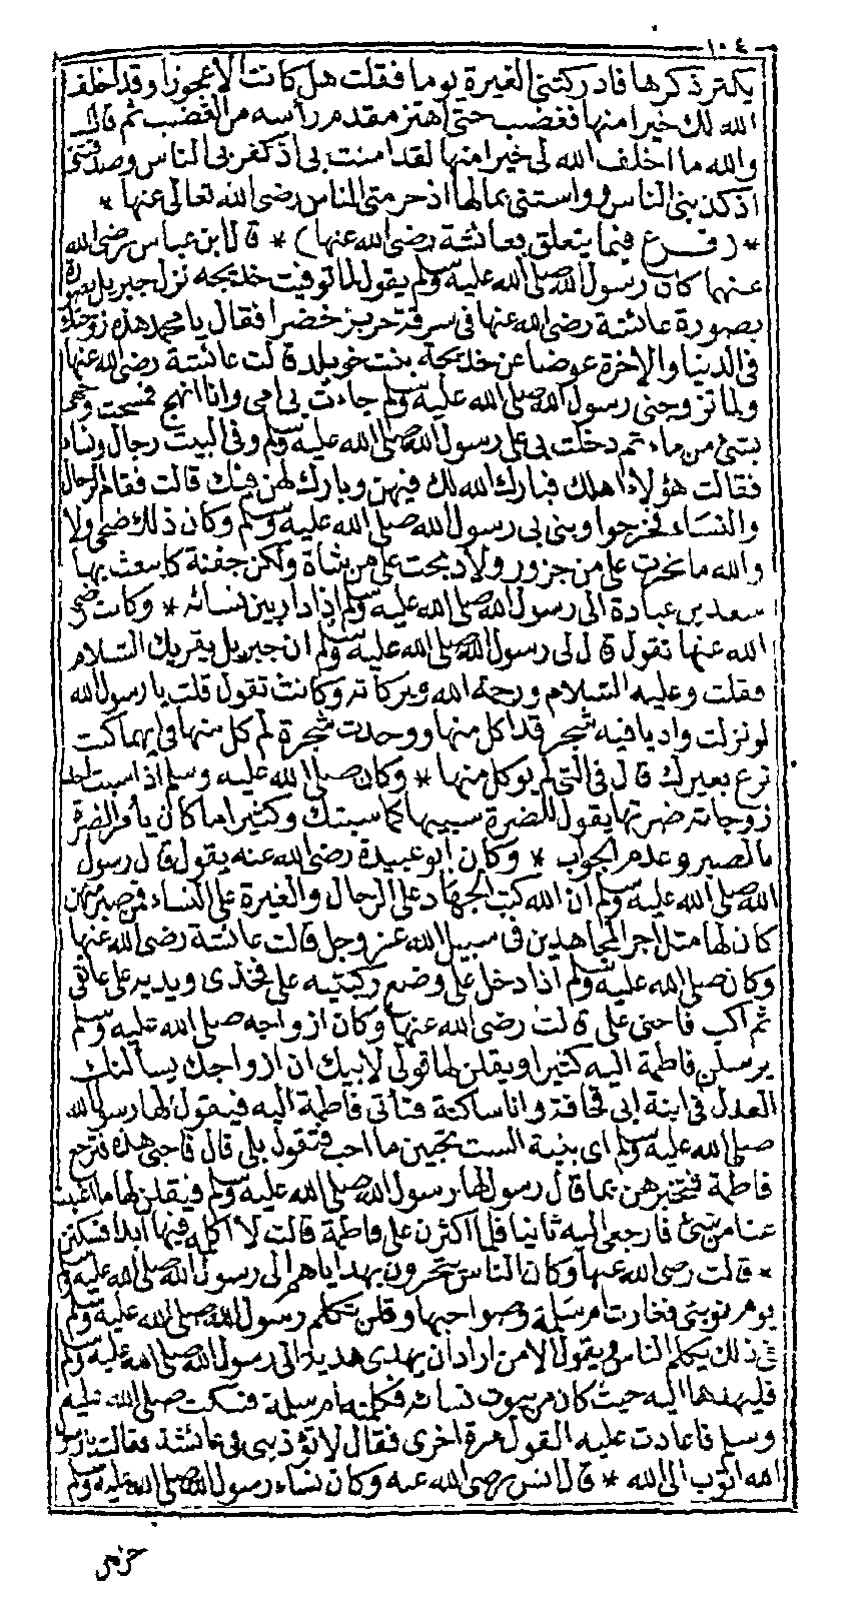 ١٠٤
يكثر ذكرها فادركتني الغيرة يوما فقلت هل كانت الا عجوزا وقد اخلف
الله لك خيرا منها فغضب حتى اهتز مقدم رأسه من الغضب ثم قال
والله ما اخلف الله لى خيرا منها لقد امنت بى اذ كفر بى الناس وصدقتنى
اذ كذبنى الناس وواستنى بمالها اذ حرمنى الناس رضى الله تعالى عنها *
* (فرع فيما يتعلق بعائشة رضى الله عنها) * قال ابن عباس رضى الله
عنهما كان رسول الله صلى الله عليه وسلم يقول لما توفيت خديجه نزل جبريل
بصورة عائشة رضى الله عنها فى سرقة حرير خضرا فقال يا محمد هذه زوجتك
فى الدنيا والاخرة عوضا عن خديجة بنت خويلد قالت عائشة رضى الله عنها
ولما تزوجنى رسول الله صلى الله عليه وسلم جاءت بى امى وانا انهج فمسحت وجهى
بشئ من ماء ثم دخلت بى على رسول الله صلى الله عليه وسلم وفى البيت رجال ونساء
فقالت هؤلاء اهلك فبارك الله لك فيهن وبارك لهن فيك قالت فقام الرجال
والنساء فخرجوا وبنى بى رسول الله صلى الله عليه وسلم وكان ذلك ضحى ولا
والله ما نحرت على من جزور ولا ذبحت على من شاة ولكن جفنة كان يبعث بها
سعد بن عبادة الى رسول الله صلى الله عليه وسلم اذا دار بين نسائه * وكانت رضى
الله عنها تقول قال لى رسول الله صلى الله عليه وسلم ان جبريل يقريك السلام
فقلت وعليه السلام ورحمة الله وبركاته وكانت تقول قلت يا رسول الله
لو نزلت واديا فيه شجر قد اكل منها ووجدت شجرة لم يكل منها فى ايهما كنت
ترع بعيرك قال فى التى لم يوكل منها * وكان صلى الله عليه وسلم اذا سبت احد
زوجاته ضرتها يقول للضرة سبيها كما سبتك وكثيرا ما كان يأمر الضرة
بالصبر وعدم الجواب * وكان ابو عبيدة رضى الله عنه يقول قال رسول
الله صلى الله عليه وسلم ان الله كتب الجهاد على الرجال والغيرة على النساء فمن صبر منهن
كان لها مثل اجر المجاهدين فى سبيل الله عز وجل قالت عائشة رضى الله عنها
وكان صلى الله عليه وسلم اذا دخل على وضع ركبتيه على فخذى ويديه على عاتقى
ثم اكب فاحنى على قالت رضى الله عنها وكان ازواجه صلى الله عليه وسلم
يرسلن فاطمة اليه كثيرا ويقلن لها قولى لابيك ان ازواجك يسألنك
العدل فى ابنة ابى قحافة وانا ساكتة فتأتى فاطمة اليه فيقول لها رسول الله
صلى الله عليه وسلم اى بنية الست تحبين ما احب فتقول بلى قال فاحبى هذه فترجع
فاطمة فتخبرهن بما قال رسول لها رسول الله صلى الله عليه وسلم فيقلن لها ما اغنيت
عنا من شئ فارجعى اليه ثانيا فلما اكثرن على فاطمة قالت لا اكلمه فيها ابدا فسكتن
* قالت رضى الله عنها وكان الناس يتحرون بهداياهم الى رسول الله صلى الله عليه وسلم
يوم نوبتى فغارت ام سلمة وصواحبها وقلن تكلم رسول الله صلى الله عليه وسلم
فى ذلك يكلم الناس ويقول الا من اراد ان يهدى هدية الى رسول الله صلى الله عليه وسلم
فليهدها اليه حيث كان من بيوت نسائه فكلمته ام سلمة فسكت صلى الله عليه
وسلم فاعادت عليه القول مرة اخرى فقال لا تؤذينى فى عائشة فقالت يا رسول
الله اتوب الى الله * قال انس رضى الله عنه وكان نساء رسول الله صلى الله عليه وسلم